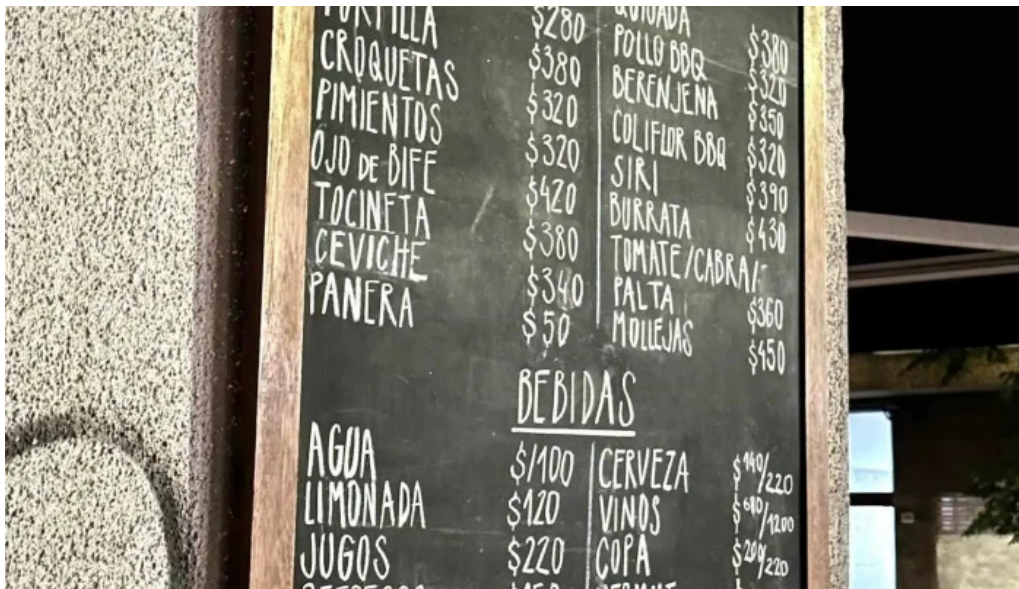 $280
TORTILLA $380
CROQUETAS $320
PIMIENTOS $320
OJO DE BIFE $420
TOCINETA $380
CEVICHE $340
PANERA $50
$380
POLLO BBQ $320
BERENJENA $350
COLIFLOR BBQ $320
SIRI $390
BURRATA $430
TOMATE/CABRA/
PALTA $360
MOLLEJAS $450
BEBIDAS
AGUA $/100
LIMONADA $120
JUGOS $220
CERVEZA $140/220
VINOS /1200
COPA /220